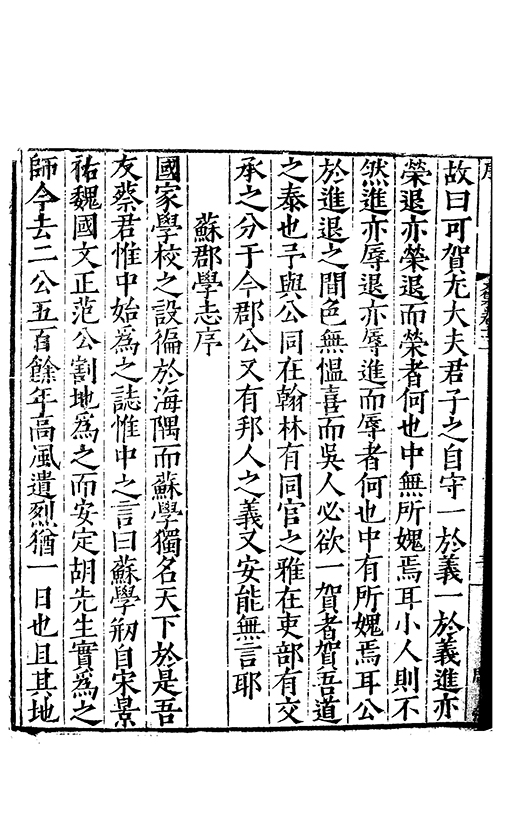 故曰可賀尤大夫君子之自守一於義一於義進亦
榮退亦榮退而榮者何也中無所媿焉耳小人則不
然進亦辱退亦辱進而辱者何也中有所媿焉耳公
於進退之間色無慍喜而吳人必欲一賀者賀吾道
之泰也予與公同在翰林有同官之雅在吏部有交
承之分于今郡公又有邦人之義又安能無言耶
蘇郡學志序
國家學校之設徧於海隅而蘇學獨名天下於是吾
友蔡君惟中始爲之誌惟中之言曰蘇學剏自宋景
祐魏國文正范公割地爲之而安定胡先生實爲之
師今去二公五百餘年高風遺烈猶一日也且其地